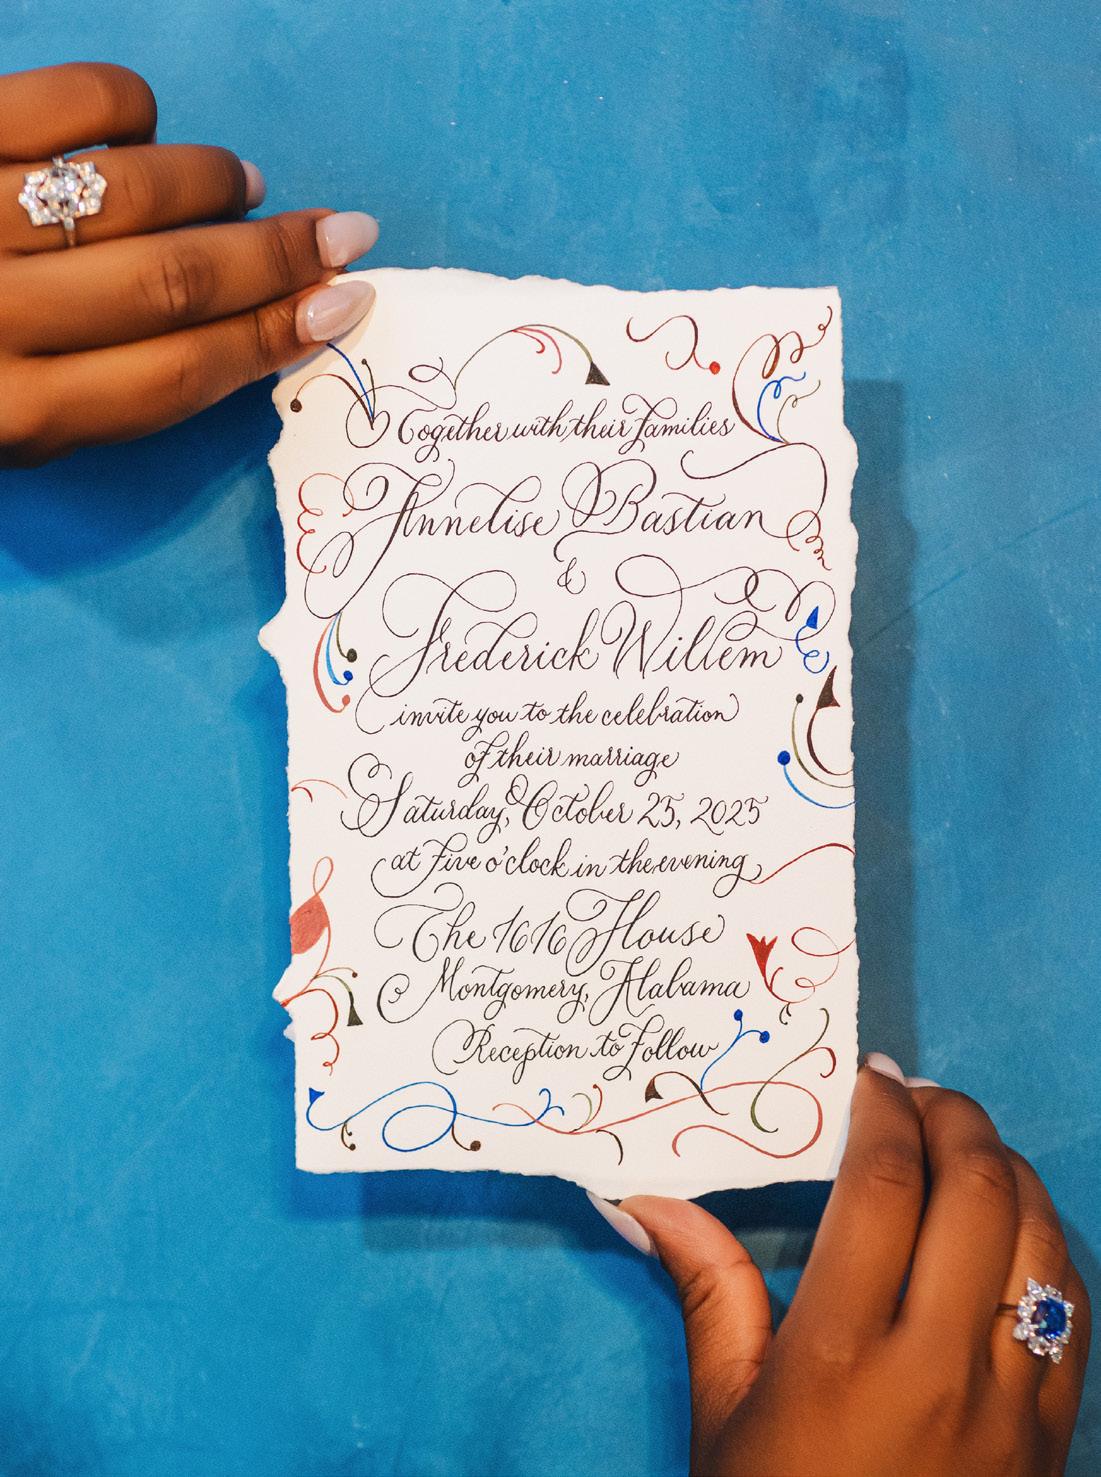 Together with their Families
Annelise Bastian
&
Frederick Willem
invite you to the celebration
of their marriage
Saturday, October 25, 2025
at Five o'clock in the evening
The 1616 House
Montgomery, Alabama
Reception to Follow